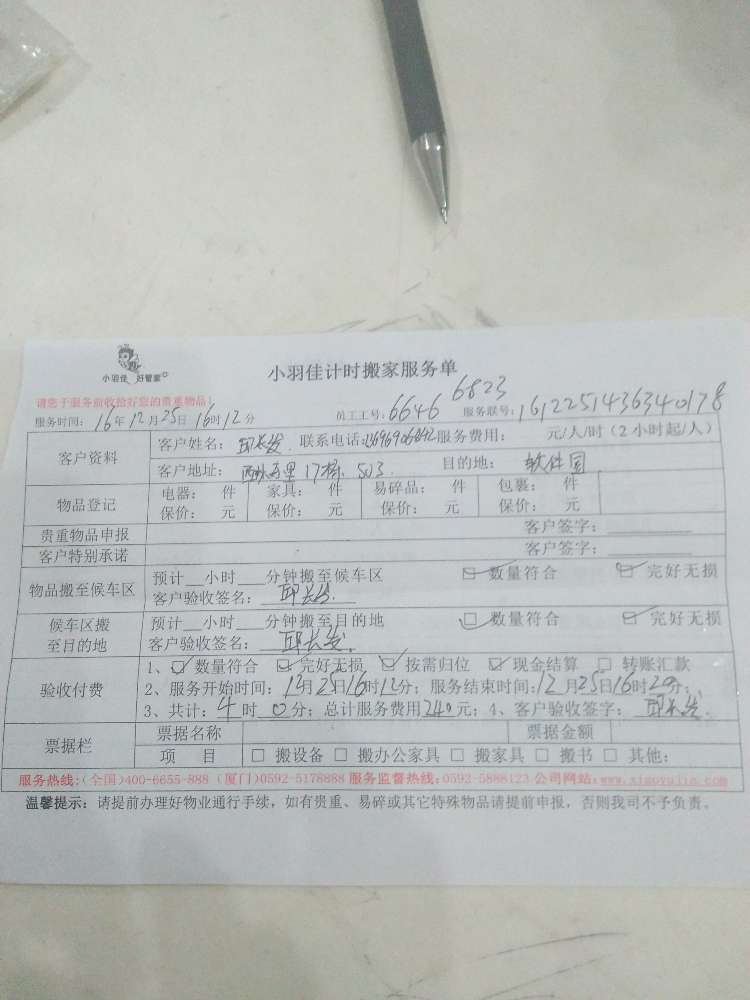 小羽佳 好管家
小羽佳计时搬家服务单
请您于服务前收拾好您的贵重物品!
6823
服务时间: 16年12月25日16时12分 员工工号: 6646 服务联号: 1612251436340178
客户资料
客户姓名: 邱长发 联系电话: 服务费用: 元/人/时(2小时起/人)
客户地址: 17栋 503 目的地: 软件园
物品登记
电器: 件 家具: 件 易碎品: 件 包裹: 件
保价: 元 保价: 元 保价: 元 保价: 元
贵重物品申报 客户签字:
客户特别承诺 客户签字:
物品搬至候车区
预计__小时___分钟搬至候车区 ☑ 数量符合 ☑ 完好无损
客户验收签名: 邱长发
候车区搬至目的地
预计__小时___分钟搬至目的地 ☑ 数量符合 ☑ 完好无损
客户验收签名: 邱长发
验收付费
1、☑ 数量符合 ☑ 完好无损 ☑ 按需归位 ☑ 现金结算 □ 转账汇款
2、服务开始时间: 12月25日16时12分; 服务结束时间: 12月25日16时20分;
3、共计: 4时0分; 总计服务费用240元; 4、客户验收签字: 邱长发
票据栏
票据名称 票据金额
项 目 □ 搬设备 □ 搬办公家具 □ 搬家具 □ 搬书 □ 其他:
服务热线:(全国)400-6655-888 (厦门)0592-5178888 服务监督热线:0592-5888123 公司网站:www.xiaoyujia.com
温馨提示: 请提前办理好物业通行手续, 如有贵重、易碎或其它特殊物品请提前申报, 否则我司不予负责。